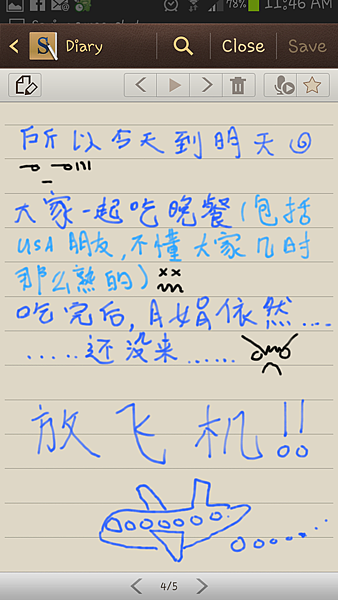 78% 11:46 AM
S Diary Close Save
所以今天到明天
大家一起吃晚餐(包括
USA朋友,不懂大家几时
那么熟的)
吃完后,A娟依然....
.....还没来......
放飞机!!
4/5